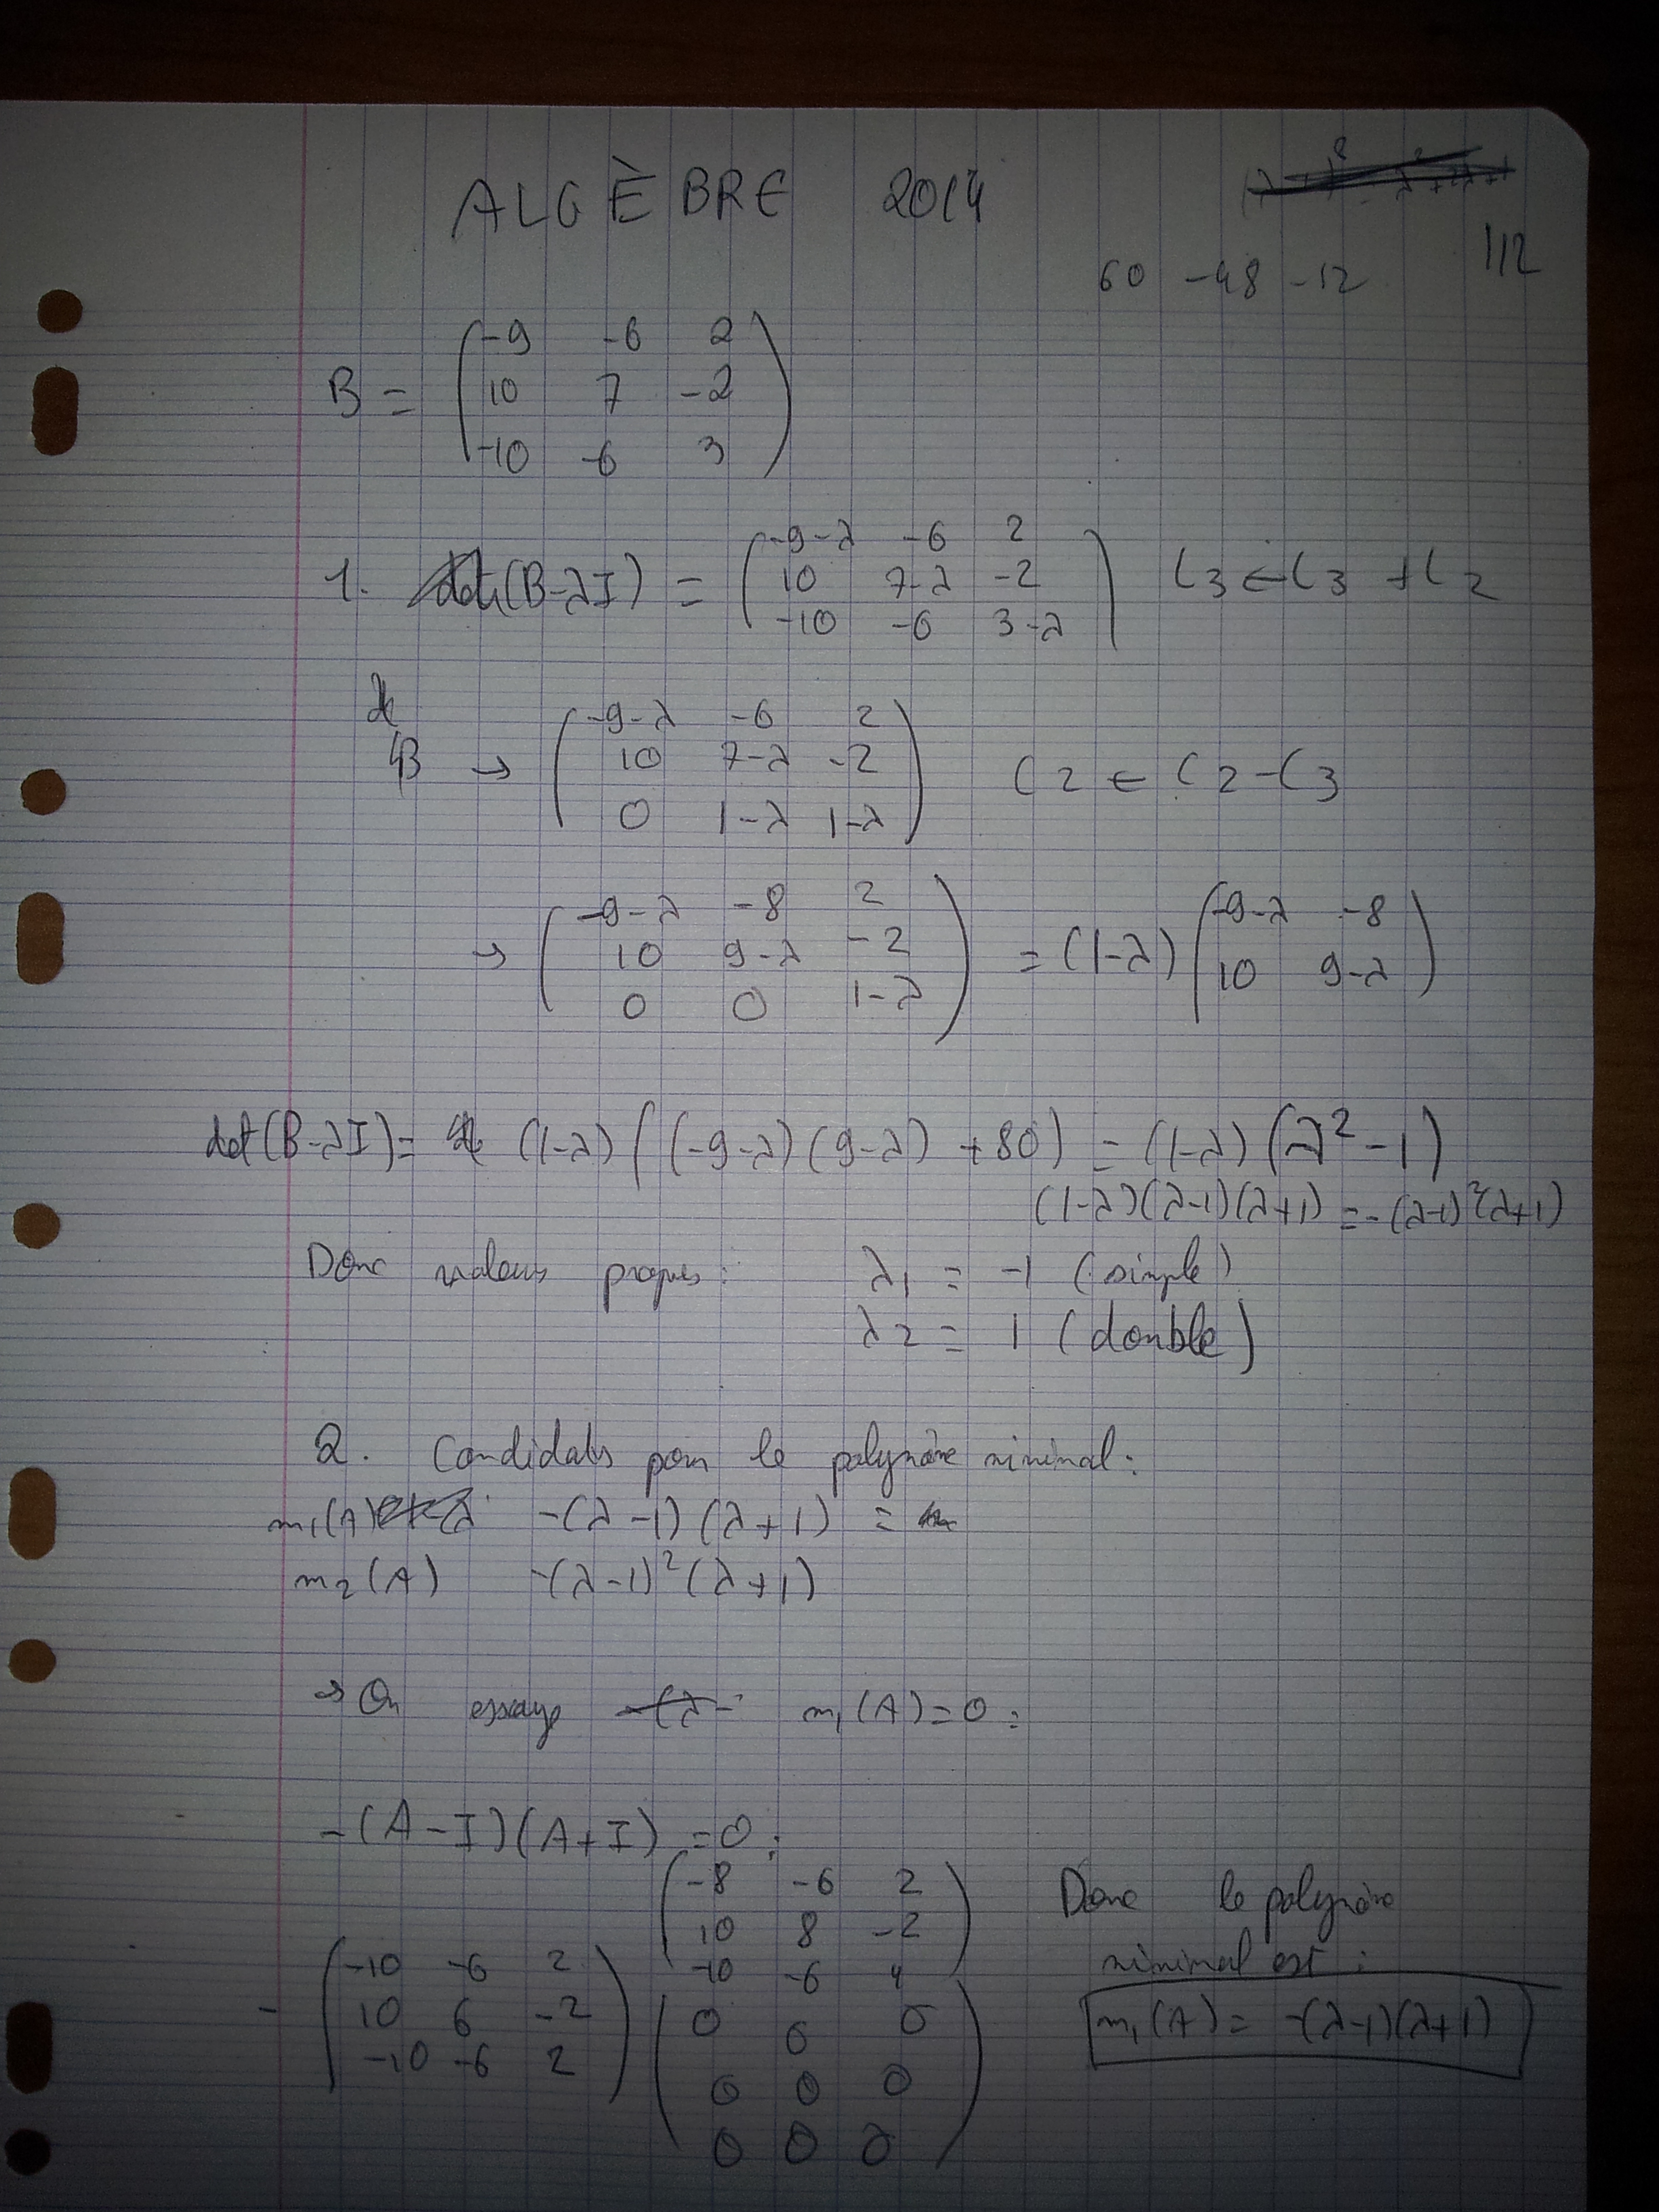 ALGÈBRE 2014
1/2
60 -48 -12
B = ( -9 -6 2
10 7 -2
-10 -6 3 )
1. (B-λI) = ( -9-λ -6 2
10 7-λ -2
-10 -6 3-λ ) C3 ← C3 + C2
B → ( -9-λ -6 2
10 7-λ -2
0 1-λ 1-λ ) C2 ← C2-C3
→ ( -9-λ -8 2
10 9-λ -2
0 0 1-λ ) = (1-λ) ( -9-λ -8
10 9-λ )
det(B-λI) = (1-λ) ((-9-λ)(9-λ) +80) = (1-λ)(λ²-1)
(1-λ)(λ-1)(λ+1) = -(λ-1)²(λ+1)
Donc valeurs propres : λ1 = -1 (simple)
λ2 = 1 (double)
2. Candidats pour le polynôme minimal :
m1(A) -(λ-1)(λ+1) =
m2(A) -(λ-1)²(λ+1)
→ On essaye m1(A)=0 :
-(A-I)(A+I) = 0 :
( -8 -6 2
10 8 -2
-10 -6 4 )
- ( -10 -6 2
10 6 -2
-10 -6 2 ) ( 0 0 0
0 0 0
0 0 0 )
Donc le polynôme
minimal est :
m1(A) = -(λ-1)(λ+1)